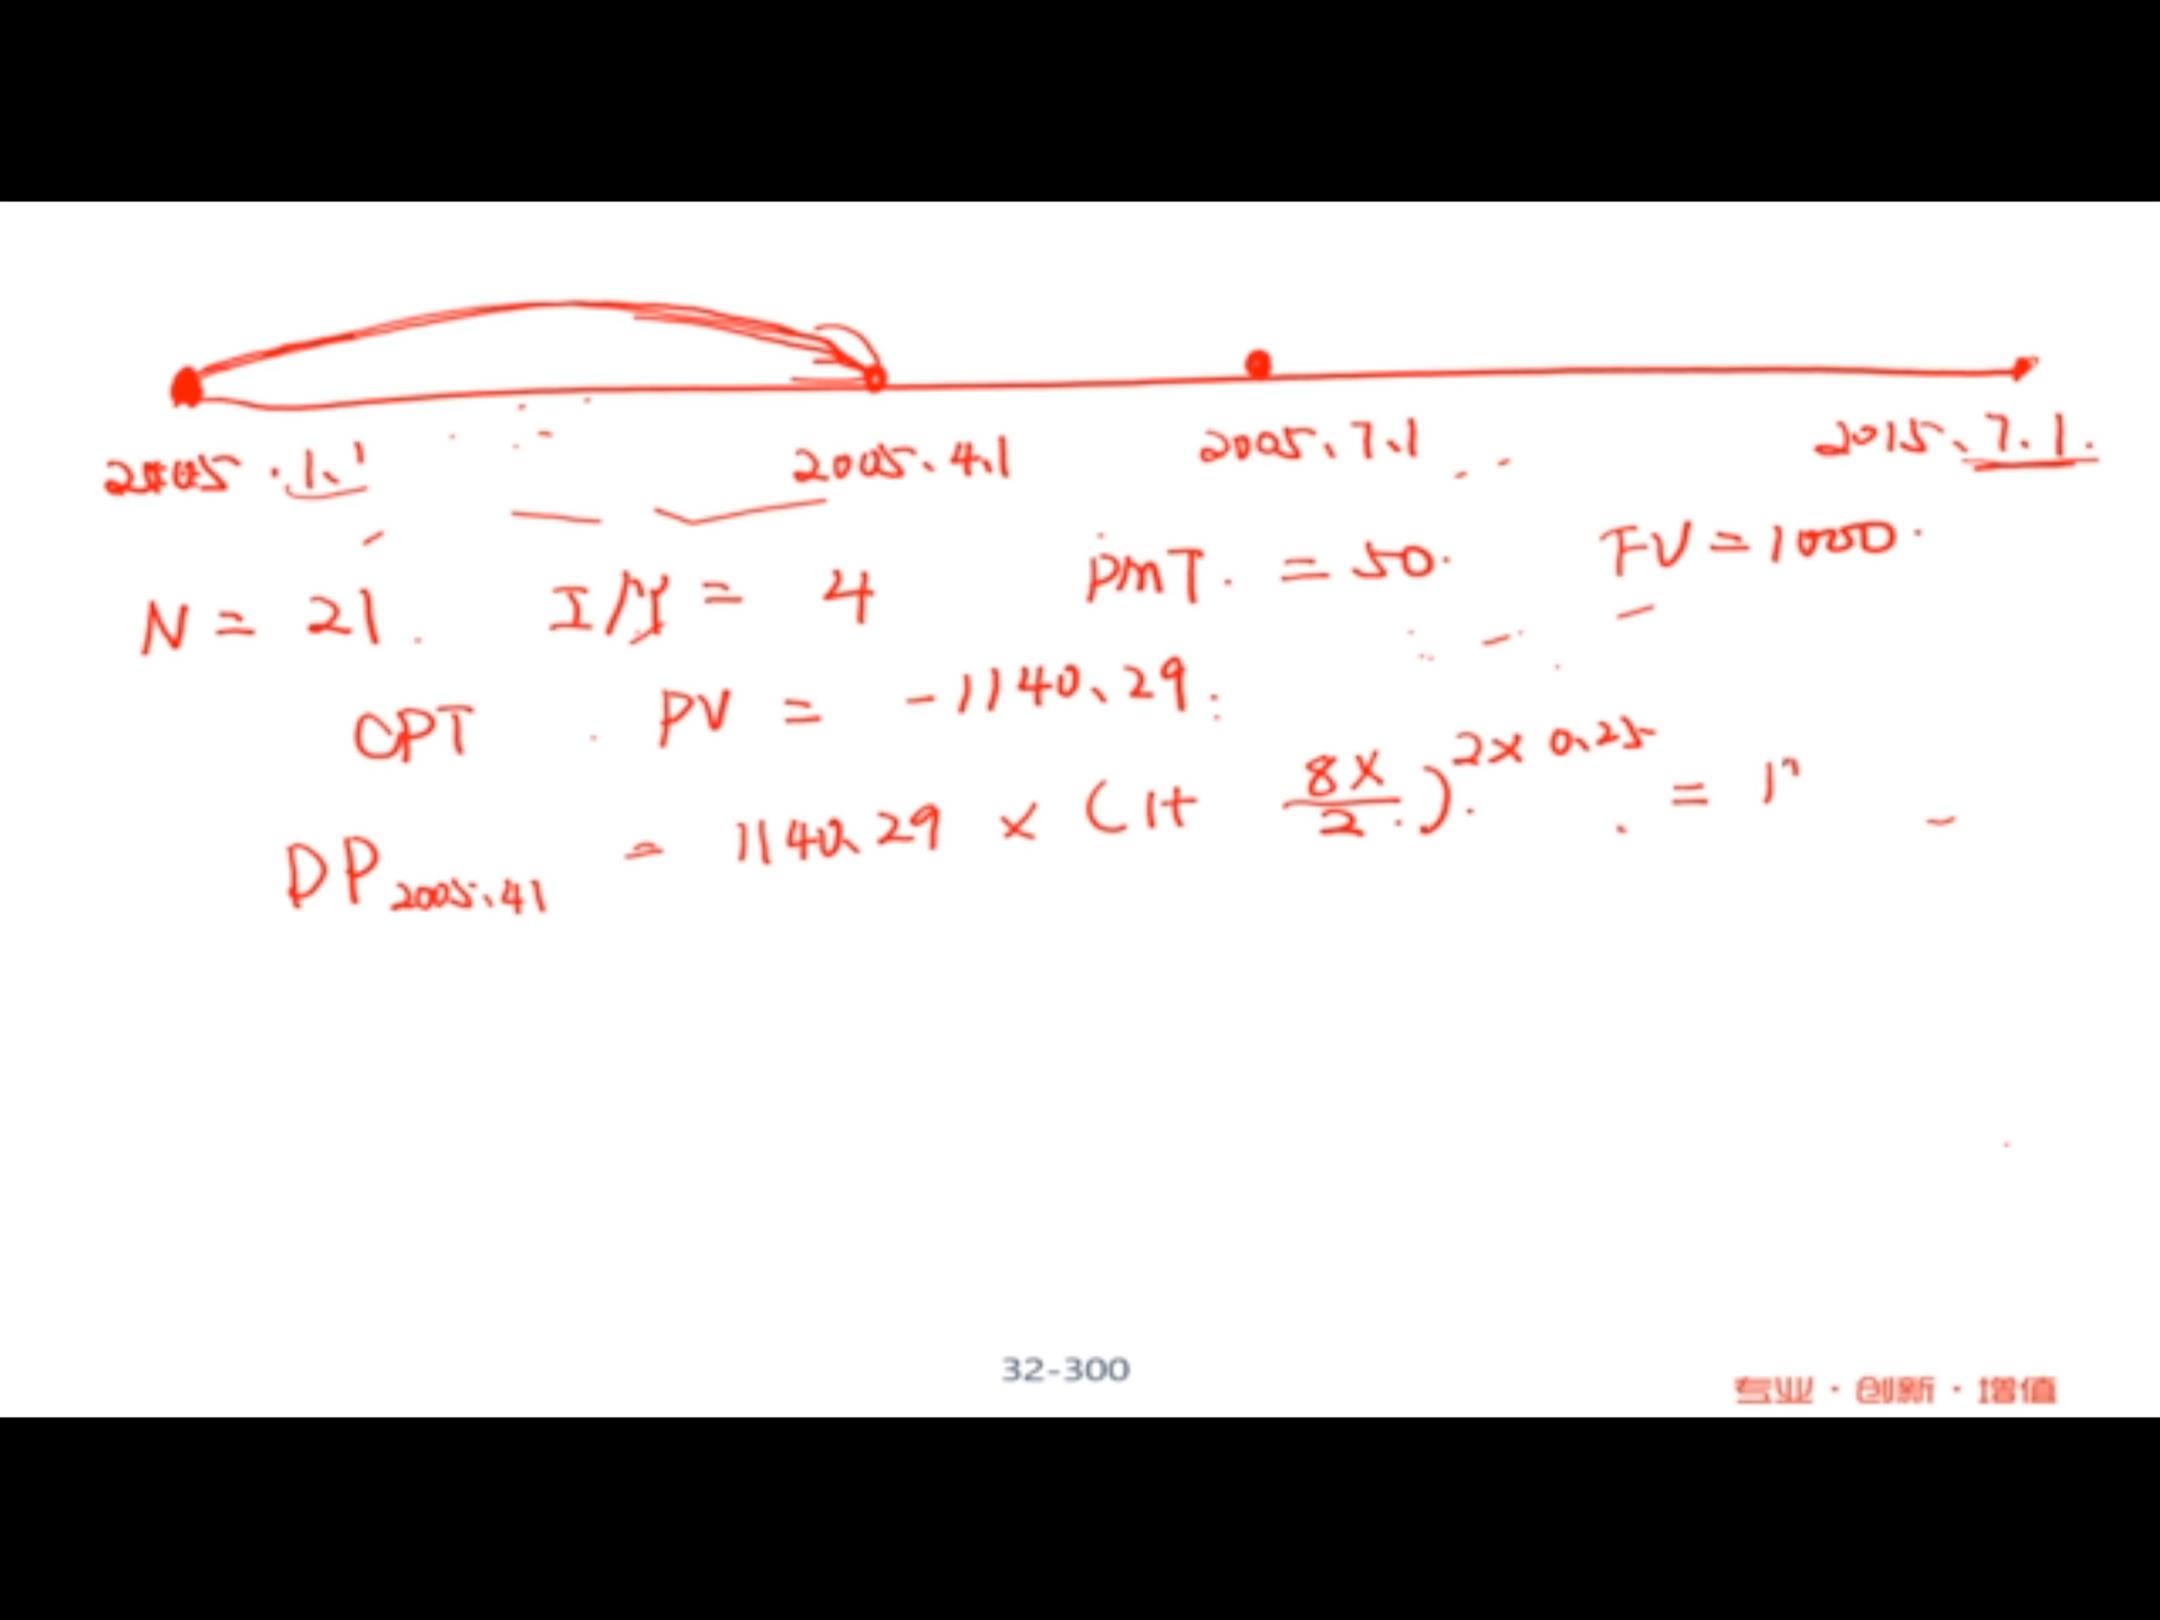 2005.1.1 2005.4.1 2005.7.1 2015.7.1.
N = 21. I/Y = 4 PMT. = 50. FV = 1000.
CPT PV = -1140.29.
DP2005.41 = 1140.29 × (1+ 8%/2)^2×0.25 = 1
32-300
专业·创新·增值